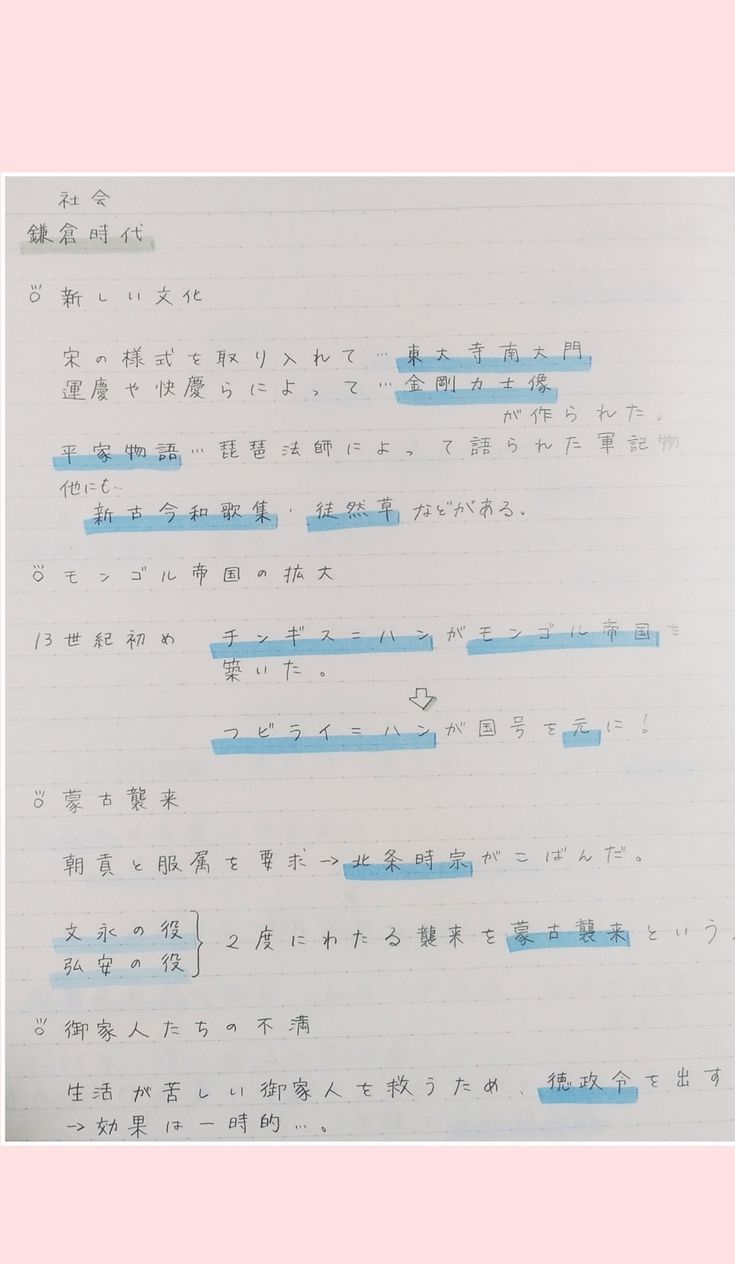 社会
鎌倉時代
新しい文化
宋の様式を取り入れて…東大寺南大門
運慶や快慶らによって…金剛力士像
が作られた。
平家物語…琵琶法師によって語られた軍記物
他にも…
新古今和歌集・徒然草などがある。
モンゴル帝国の拡大
13世紀初め チンギス=ハンがモンゴル帝国を
築いた。
⇩
フビライ=ハンが国号を元に!
蒙古襲来
朝貢と服属を要求→北条時宗がこばんだ。
文永の役
弘安の役
2度にわたる襲来を蒙古襲来という。
御家人たちの不満
生活が苦しい御家人を救うため、徳政令を出す
→効果は一時的…。